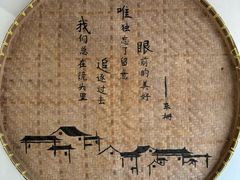 我们总在镜头里
追逐过去
唯独忘了留意
眼前的美好